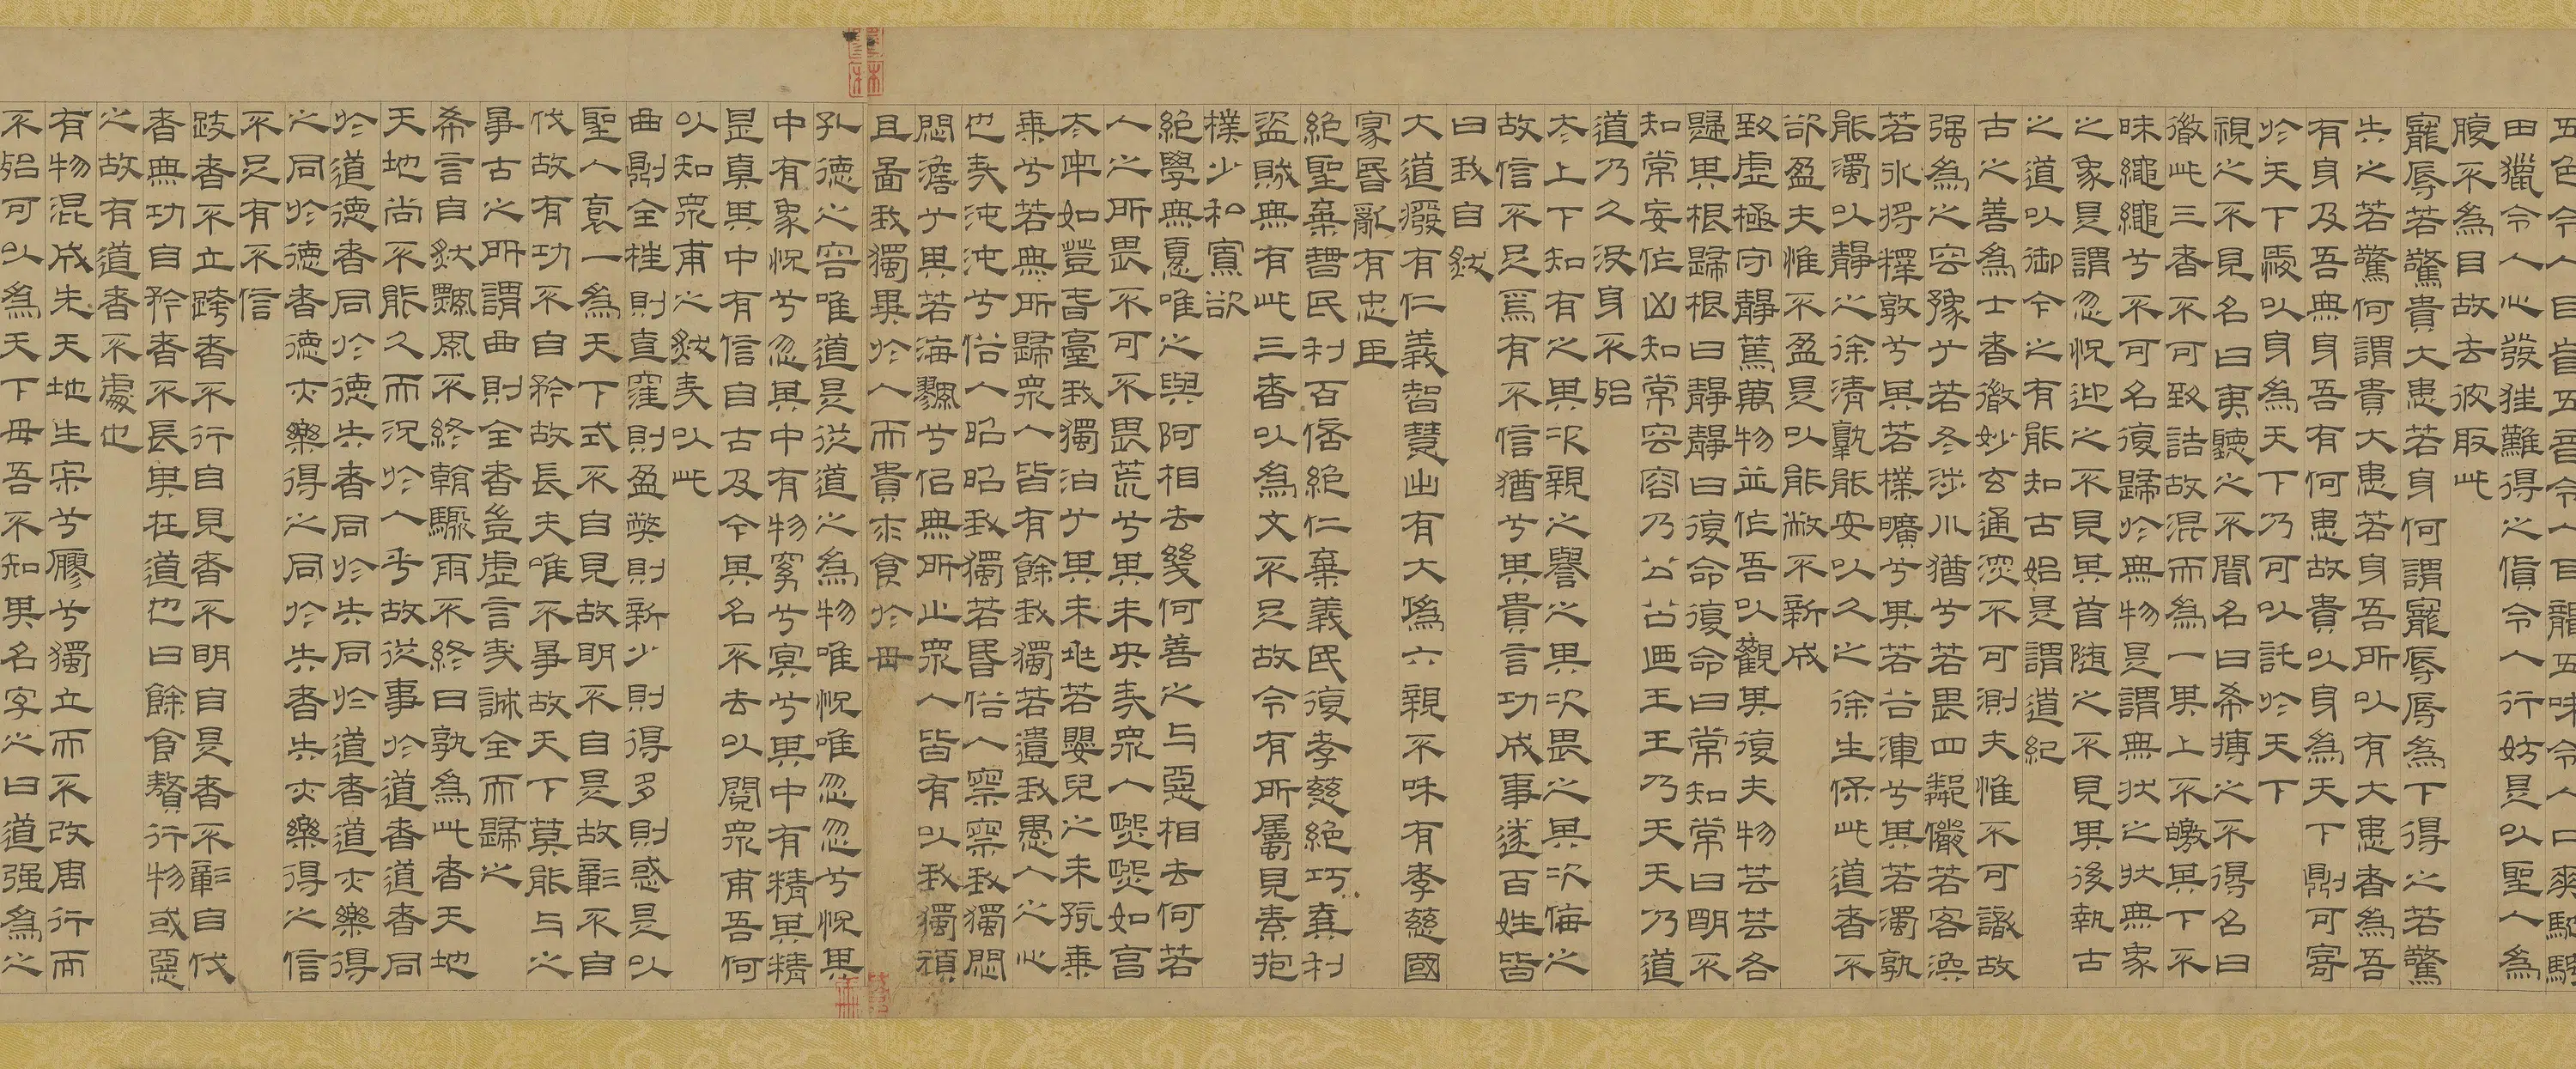 五色令人目盲五音令人耳聾五味令人口爽馳騁
田獵令人心發狂難得之貨令人行妨是以聖人為
腹不為目故去彼取此
寵辱若驚貴大患若身何謂寵辱辱為下得之若驚
失之若驚何謂貴大患若身吾所以有大患者為吾
有身及吾無身吾有何患故貴以身為天下則可寄
於天下愛以身為天下乃可以託於天下
視之不見名曰夷聽之不聞名曰希摶之不得名曰
微此三者不可致詰故混而為一其上不皦其下不
昧繩繩兮不可名復歸於無物是謂無狀之狀無象
之象是謂忽恍迎之不見其首隨之不見其後執古
之道以御今之有能知古始是謂道紀
古之善為士者微妙玄通深不可測夫惟不可識故
强為之容豫兮若冬涉川猶兮若畏四鄰儼若客渙
若冰將釋敦兮其若樸曠兮其若谷渾兮其若濁孰
能濁以靜之徐清孰能安以久之徐生保此道者不
欲盈夫惟不盈是以能敝不新成
致虛極守靜篤萬物並作吾以觀其復夫物芸芸各
歸其根歸根曰靜靜曰復命復命曰常知常曰明不
知常妄作凶知常容容乃公公乃王王乃天天乃道
道乃久沒身不殆
太上下知有之其次親之譽之其次畏之其次侮之
故信不足焉有不信猶兮其貴言功成事遂百姓皆
曰我自然
大道廢有仁義智慧出有大偽六親不和有孝慈國
家昏亂有忠臣
絕聖棄智民利百倍絕仁棄義民復孝慈絕巧棄利
盜賊無有此三者以為文不足故令有所屬見素抱
樸少私寡欲
絕學無憂唯之與阿相去幾何善之与惡相去何若
人之所畏不可不畏荒兮其未央哉眾人熙熙如享
太牢如登春臺我獨泊兮其未兆若嬰兒之未孩乘
乘兮若無所歸眾人皆有餘我獨若遺我愚人之心
也哉沌沌兮俗人昭昭我獨若昏俗人察察我獨悶
悶澹兮其若海飂兮似無所止眾人皆有以我獨頑
且鄙我獨異於人而貴求食於母
孔德之容唯道是從道之為物唯恍唯忽忽兮恍其
中有象恍兮忽其中有物窈兮冥兮其中有精其精
甚真其中有信自古及今其名不去以閱眾甫吾何
以知眾甫之然哉以此
曲則全枉則直窪則盈弊則新少則得多則惑是以
聖人裒一為天下式不自見故明不自是故彰不自
伐故有功不自矜故長夫唯不爭故天下莫能与之
爭古之所謂曲則全者豈虛言哉誠全而歸之
希言自然飄風不終朝驟雨不終日孰為此者天地
天地尚不能久而況於人乎故從事於道者道者同
於道德者同於德失者同於失同於道者道亦樂得
之同於德者德亦樂得之同於失者失亦樂得之信
不足有不信
跂者不立跨者不行自見者不明自是者不彰自伐
者無功自矜者不長其在道也曰餘食贅行物或惡
之故有道者不處也
有物混成先天地生寂兮寥兮獨立而不改周行而
不殆可以為天下母吾不知其名字之曰道强為之